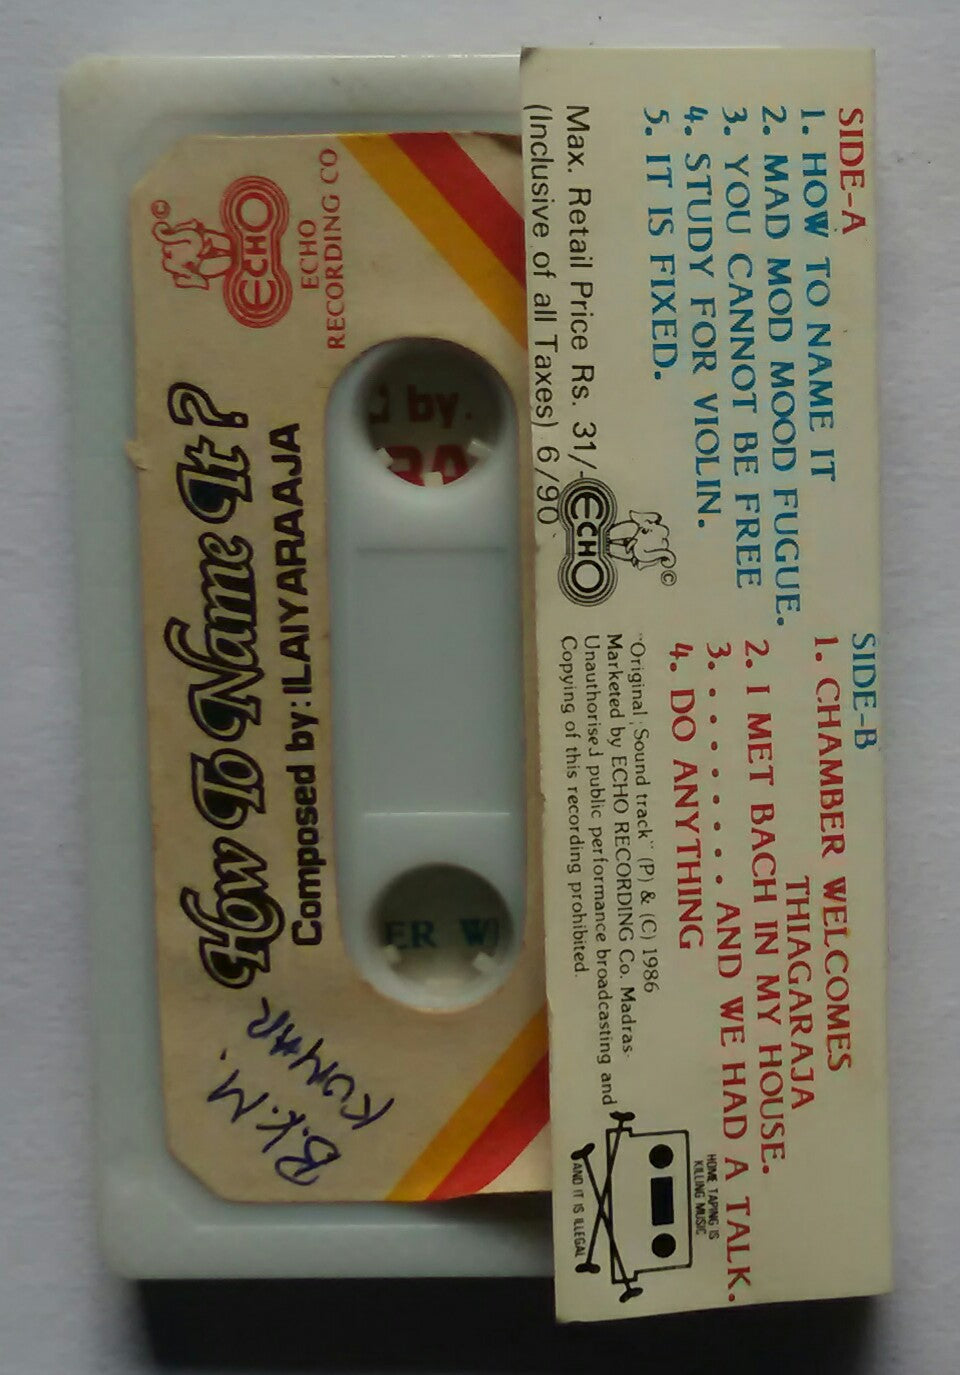 SIDE-A
1. HOW TO NAME IT
2. MAD MOD MOOD FUGUE.
3. YOU CANNOT BE FREE
4. STUDY FOR VIOLIN.
5. IT IS FIXED.
Max. Retail Price Rs. 31/-
(Inclusive of all Taxes) 6/90
ECHO
©
SIDE-B
1. CHAMBER WELCOMES
THIAGARAJA
2. I MET BACH IN MY HOUSE.
3. . . . . . . . . AND WE HAD A TALK.
4. DO ANYTHING
"Original Sound track" (P) & (C) 1986
Marketed by ECHO RECORDING Co. Madras-
Unauthorised public performance broadcasting and
Copying of this recording prohibited.
HOME TAPING IS
KILLING MUSIC
AND IT IS ILLEGAL
ECHO
RECORDING CO
ECHO
©
How To Name It?
Composed by: ILAIYARAAJA
d by.
RA
ER W
B.K.M.
KUMAR